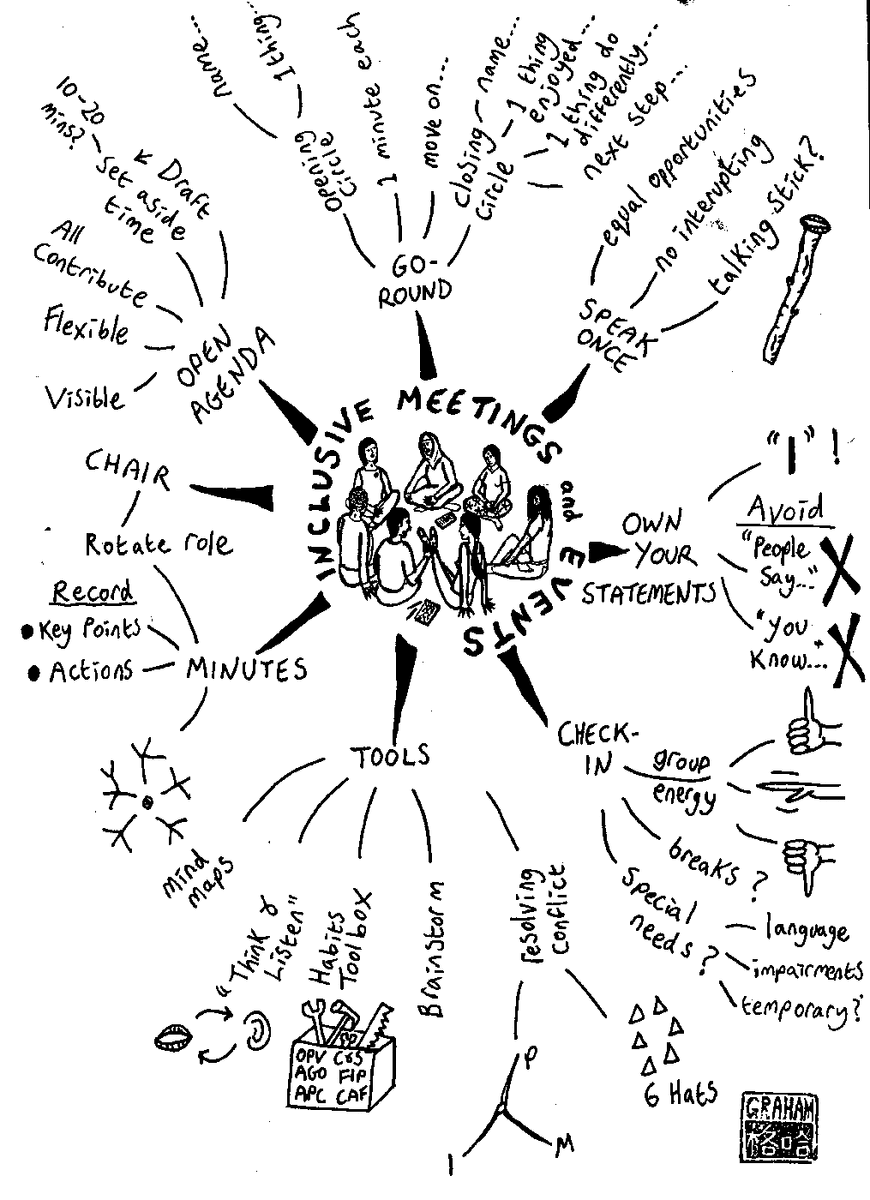 INCLUSIVE MEETINGS
and EVENTS
GO-
ROUND
Opening
Circle
name...
1 thing...
1 minute each
move on...
closing
Circle
name...
1 thing
enjoyed...
1 thing do
differently...
next step...
SPEAK
ONCE
equal opportunities
no interupting
talking stick?
OWN
YOUR
STATEMENTS
"I"!
Avoid
"People
Say..."
"You
Know..."
CHECK-
IN
group
energy
breaks?
Special
needs?
language
impairments
temporary?
TOOLS
resolving
Conflict
P
M
I
6 Hats
Brainstorm
Habits
Toolbox
OPV C&S
AGO FIP
APC CAF
"Think &
Listen"
Mind
maps
MINUTES
Record
Key Points
Actions
CHAIR
Rotate role
OPEN
AGENDA
Visible
Flexible
All
Contribute
Set aside
time
10-20
mins?
Draft
GRAHAM
格哈